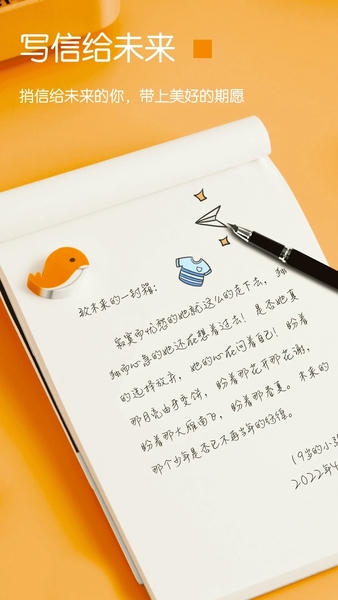 写信给未来
捎信给未来的你，带上美好的期愿
致未来的一封箱：
寂寞而忧愁的她就这么的走下去，独
独而心急的她还在想着过去！是否她真
的选择放弃，她的心在问着自己！盼着
那月亮由牙变饼，盼着那花开那花谢，
盼着那大雁南飞，盼着那春夏。未来的
那个少年是否已不再当年的彷徨。
19岁的小
2022年